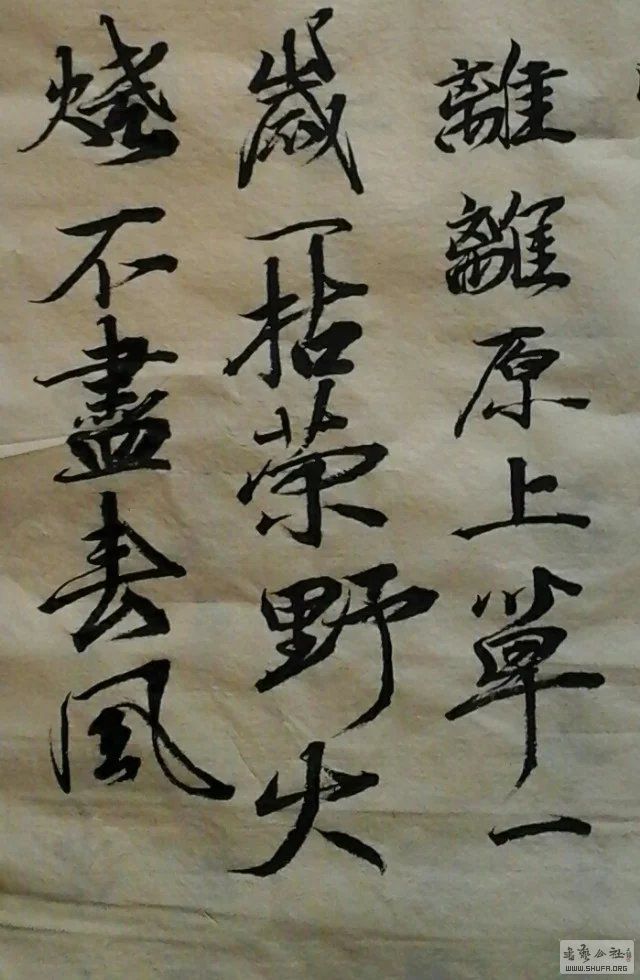 離離原上草一
歲一枯榮野火
燒不盡春風
书艺公社
WWW.SHUFA.ORG